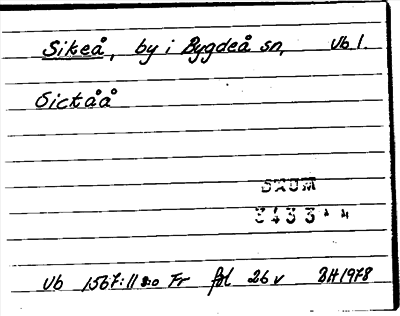 Sikeå, by i Bygdeå sn, Vb l.
Sicktåå
DAUM
3433
Vb 1567:11 8:0 Fr fol 26 v BH 1978